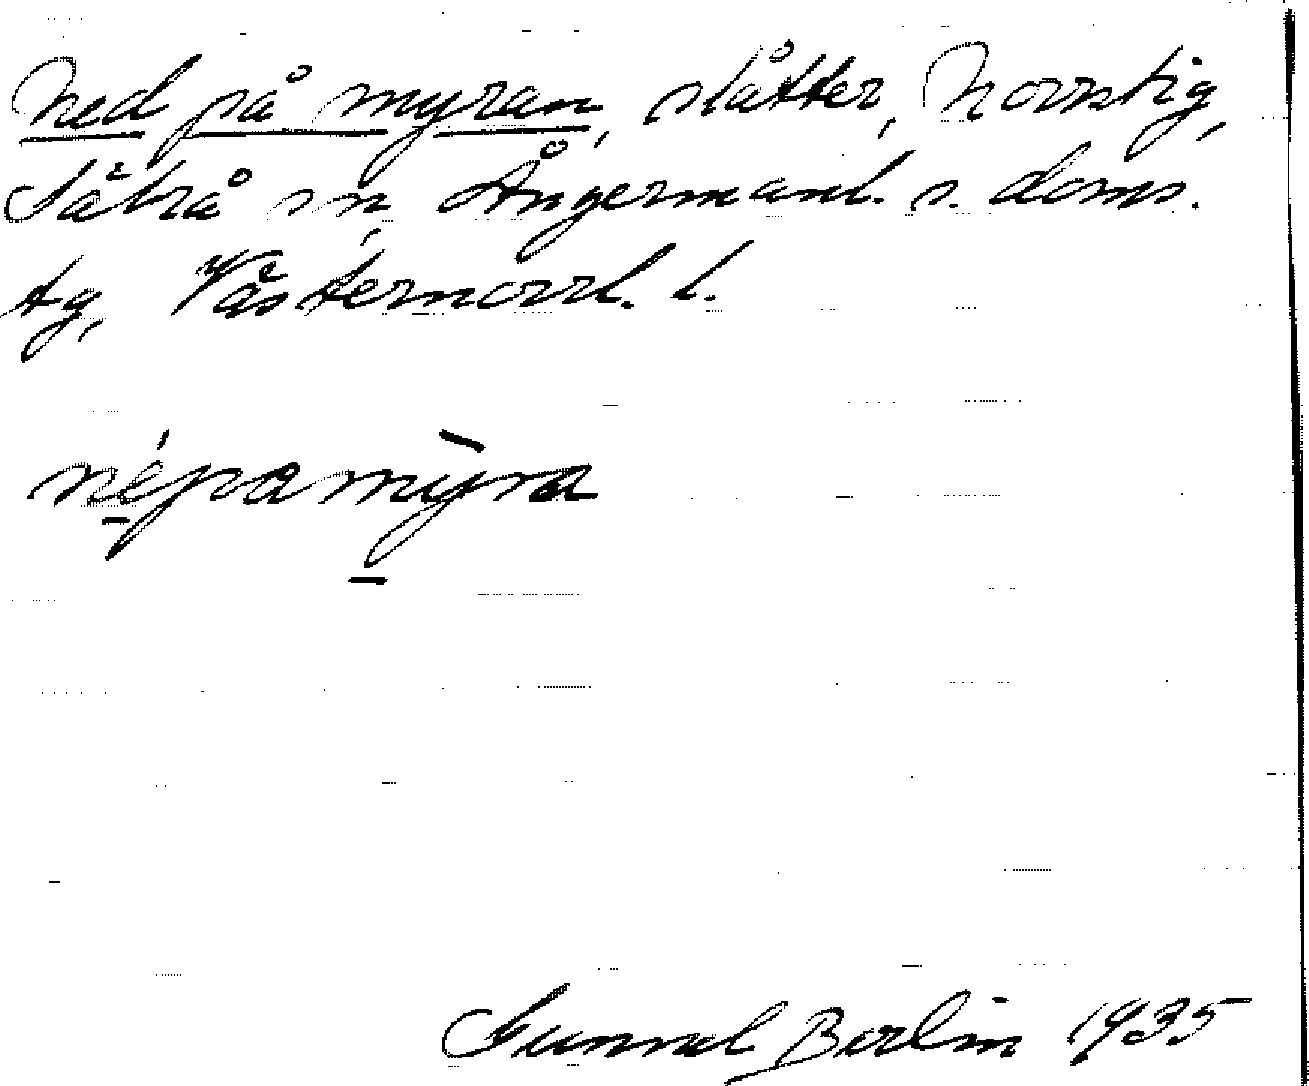 Ned på myran, slåtter, Norrstig,
Säbrå sn, Ångermanl. s. doms.
tg, Västernorrl. l.
népamỳra
Gunnel Berlin 1935